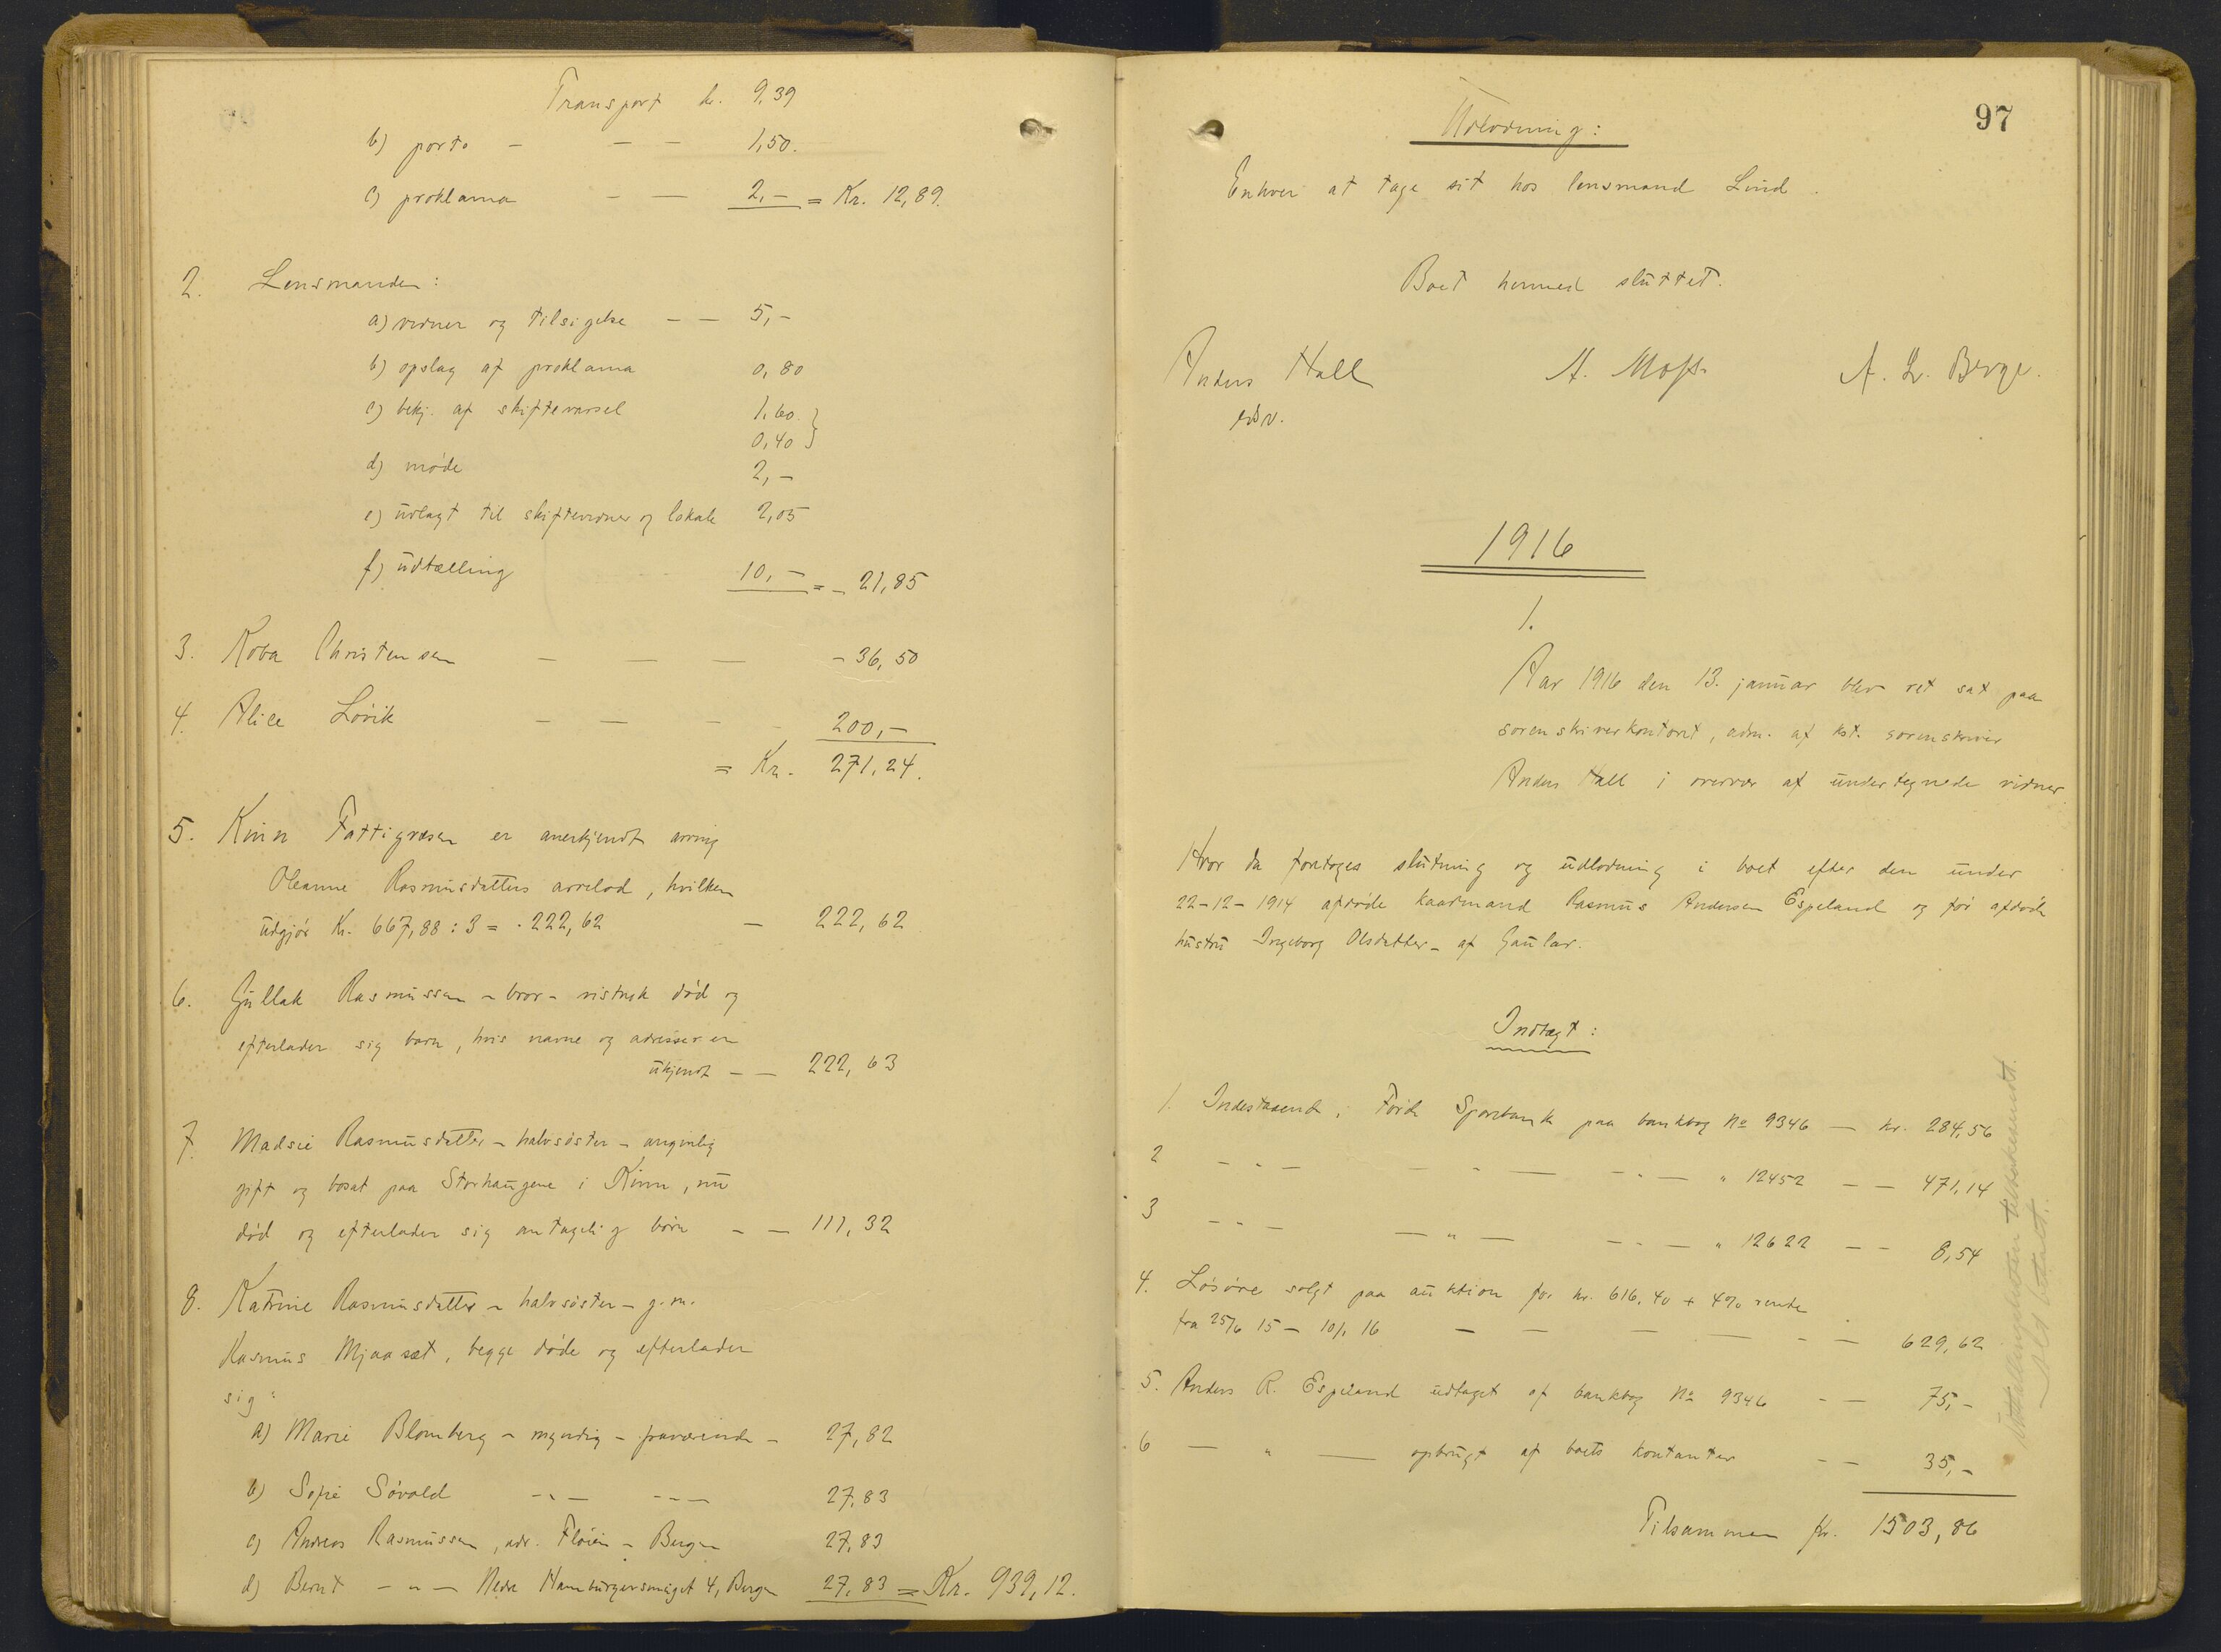 Transport kr. 9,39
b) porto - - - 1,50.
c) proklama - - 2,- = Kr. 12,89.
2. Lensmanden:
a) vidner og tilsigelse - - 5,-
b) opslag af proklama 0,80
c) bekj. af skiftevarsel 1,60
0,40 }
d) møde 2,-
e) udlagt til skiftevidner og lokale 2,05
f) udtælling 10,- = - 21,85
3. Christensen - - - - 36,50
4. Alice Løvik - - - 200,-
= Kr. 271,24.
5. Kinn Fattigvæsen er anerkjendt arving
Oleanne Rasmusdatters arvelod, hvilken
udgjør Kr. 667,88 : 3 = - 222,62 - 222,62
6. Gullak Rasmussen - bror - vistnok død og
efterlader sig barn, hvis navne og adresser er
ukjendt - - 222,63
7. Madsie Rasmusdatter - halvsøster - angivelig
gift og bosat paa Storhaugene i Kinn, nu
død og efterlader sig antagelig børn - - 111,32
8. Katrine Rasmusdatter - halvsøster - g.m.
Rasmus Mjaasæt, begge døde og efterlader
sig:
a) Marie Blomberg - myndig - fraværende - 27,82
b) Sofie Søvold -"- -"- 27,83
c) Andreas Rasmussen, adr. Fløien - Bergen 27,83
d) Bernt -"- Nedre Hamburgersmuget 4, Bergen 27,83 = Kr. 939,12.
97
Udlodning:
Enhver at tage sit hos lensmand Lind.
Boet hermed sluttet.
Anders Hall A. Moss A. L. Berge.
edsv.
1916
1.
Aar 1916 den 13. januar blev ret sat paa
sorenskriverkontoret, adm. af kst. sorenskriver
Anders Hall i overvær af undertegnede vidner.
Hvor da foretoges slutning og udlodning i boet efter den under
22-12-1914 afdøde kaarmand Rasmus Andersen Espeland og før afdøde
hustru Ingeborg Olsdatter - af Gaular.
Indtægt:
1. Indestaaende i Førde Sparebank paa bankbog No 9346 - kr. 284,56
2 -"- -"- -"- " 12452 - - 471,14
3 -"- -"- -"- " 12622 - - 8,54
4. Løsøre solgt paa auktion for kr. 616,40 + 4% rente
fra 25/6 15 - 10/1 16 - - - - - - 629,62
5. Anders R. Espeland udtaget af bankbog No 9346 - - 75,-
6 - " - opbrugt af boets kontanter - - 35,-
Tilsammen kr. 1503,86
Alt betalt.